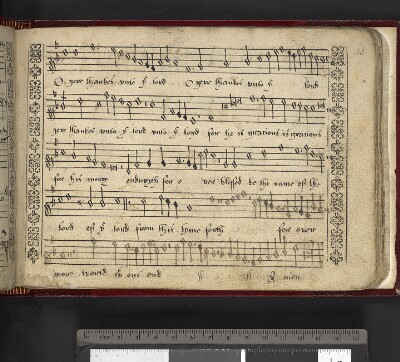 O geve thankes unto yͤ lord O geve thankes unto yͤ lord
geve thankes unto yͤ lord unto yͤ lord for he is gracious is gracious
for his mercy endureth for e ver blessed be the name of the
lord of yͤ lord from this tyme forth for ever
more world out end men